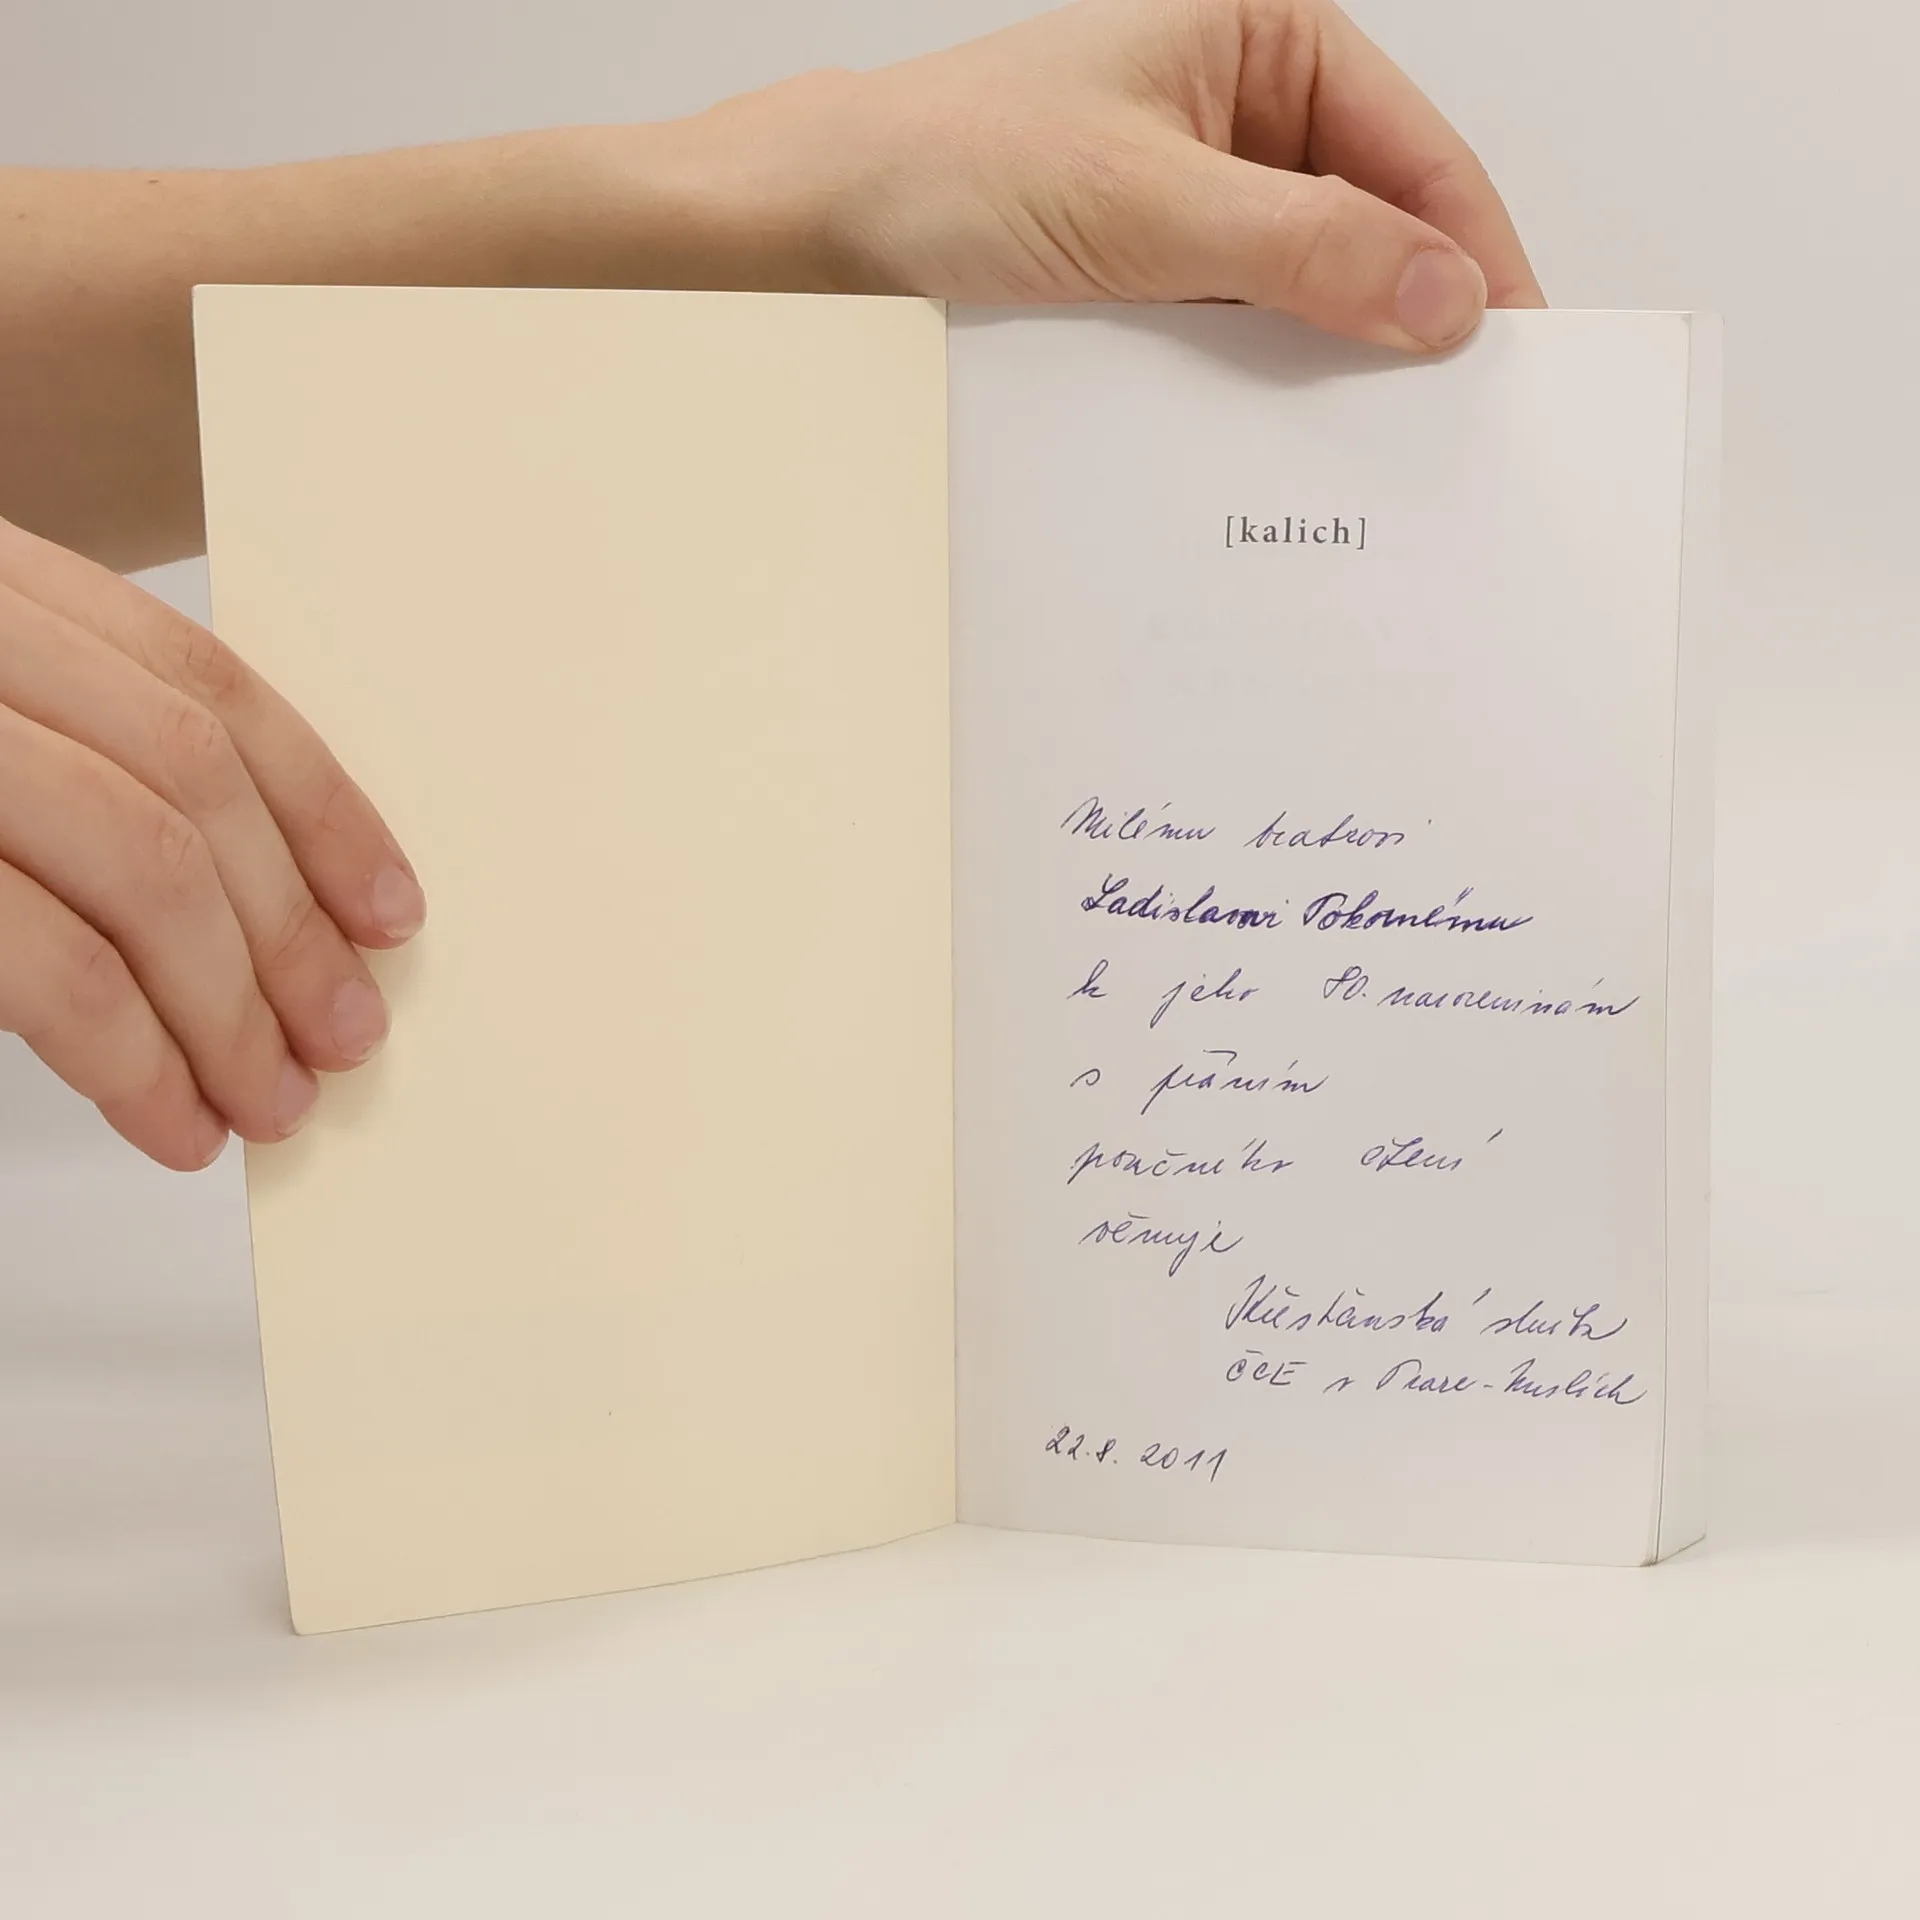 [kalich]
Milému bratrovi
Ladislavovi Pokornému
k jeho 80. narozeninám
s přáním
poučného čtení
věnuje
Křesťanská služba
ČCE v Praze-Nuslích
22.8. 2011